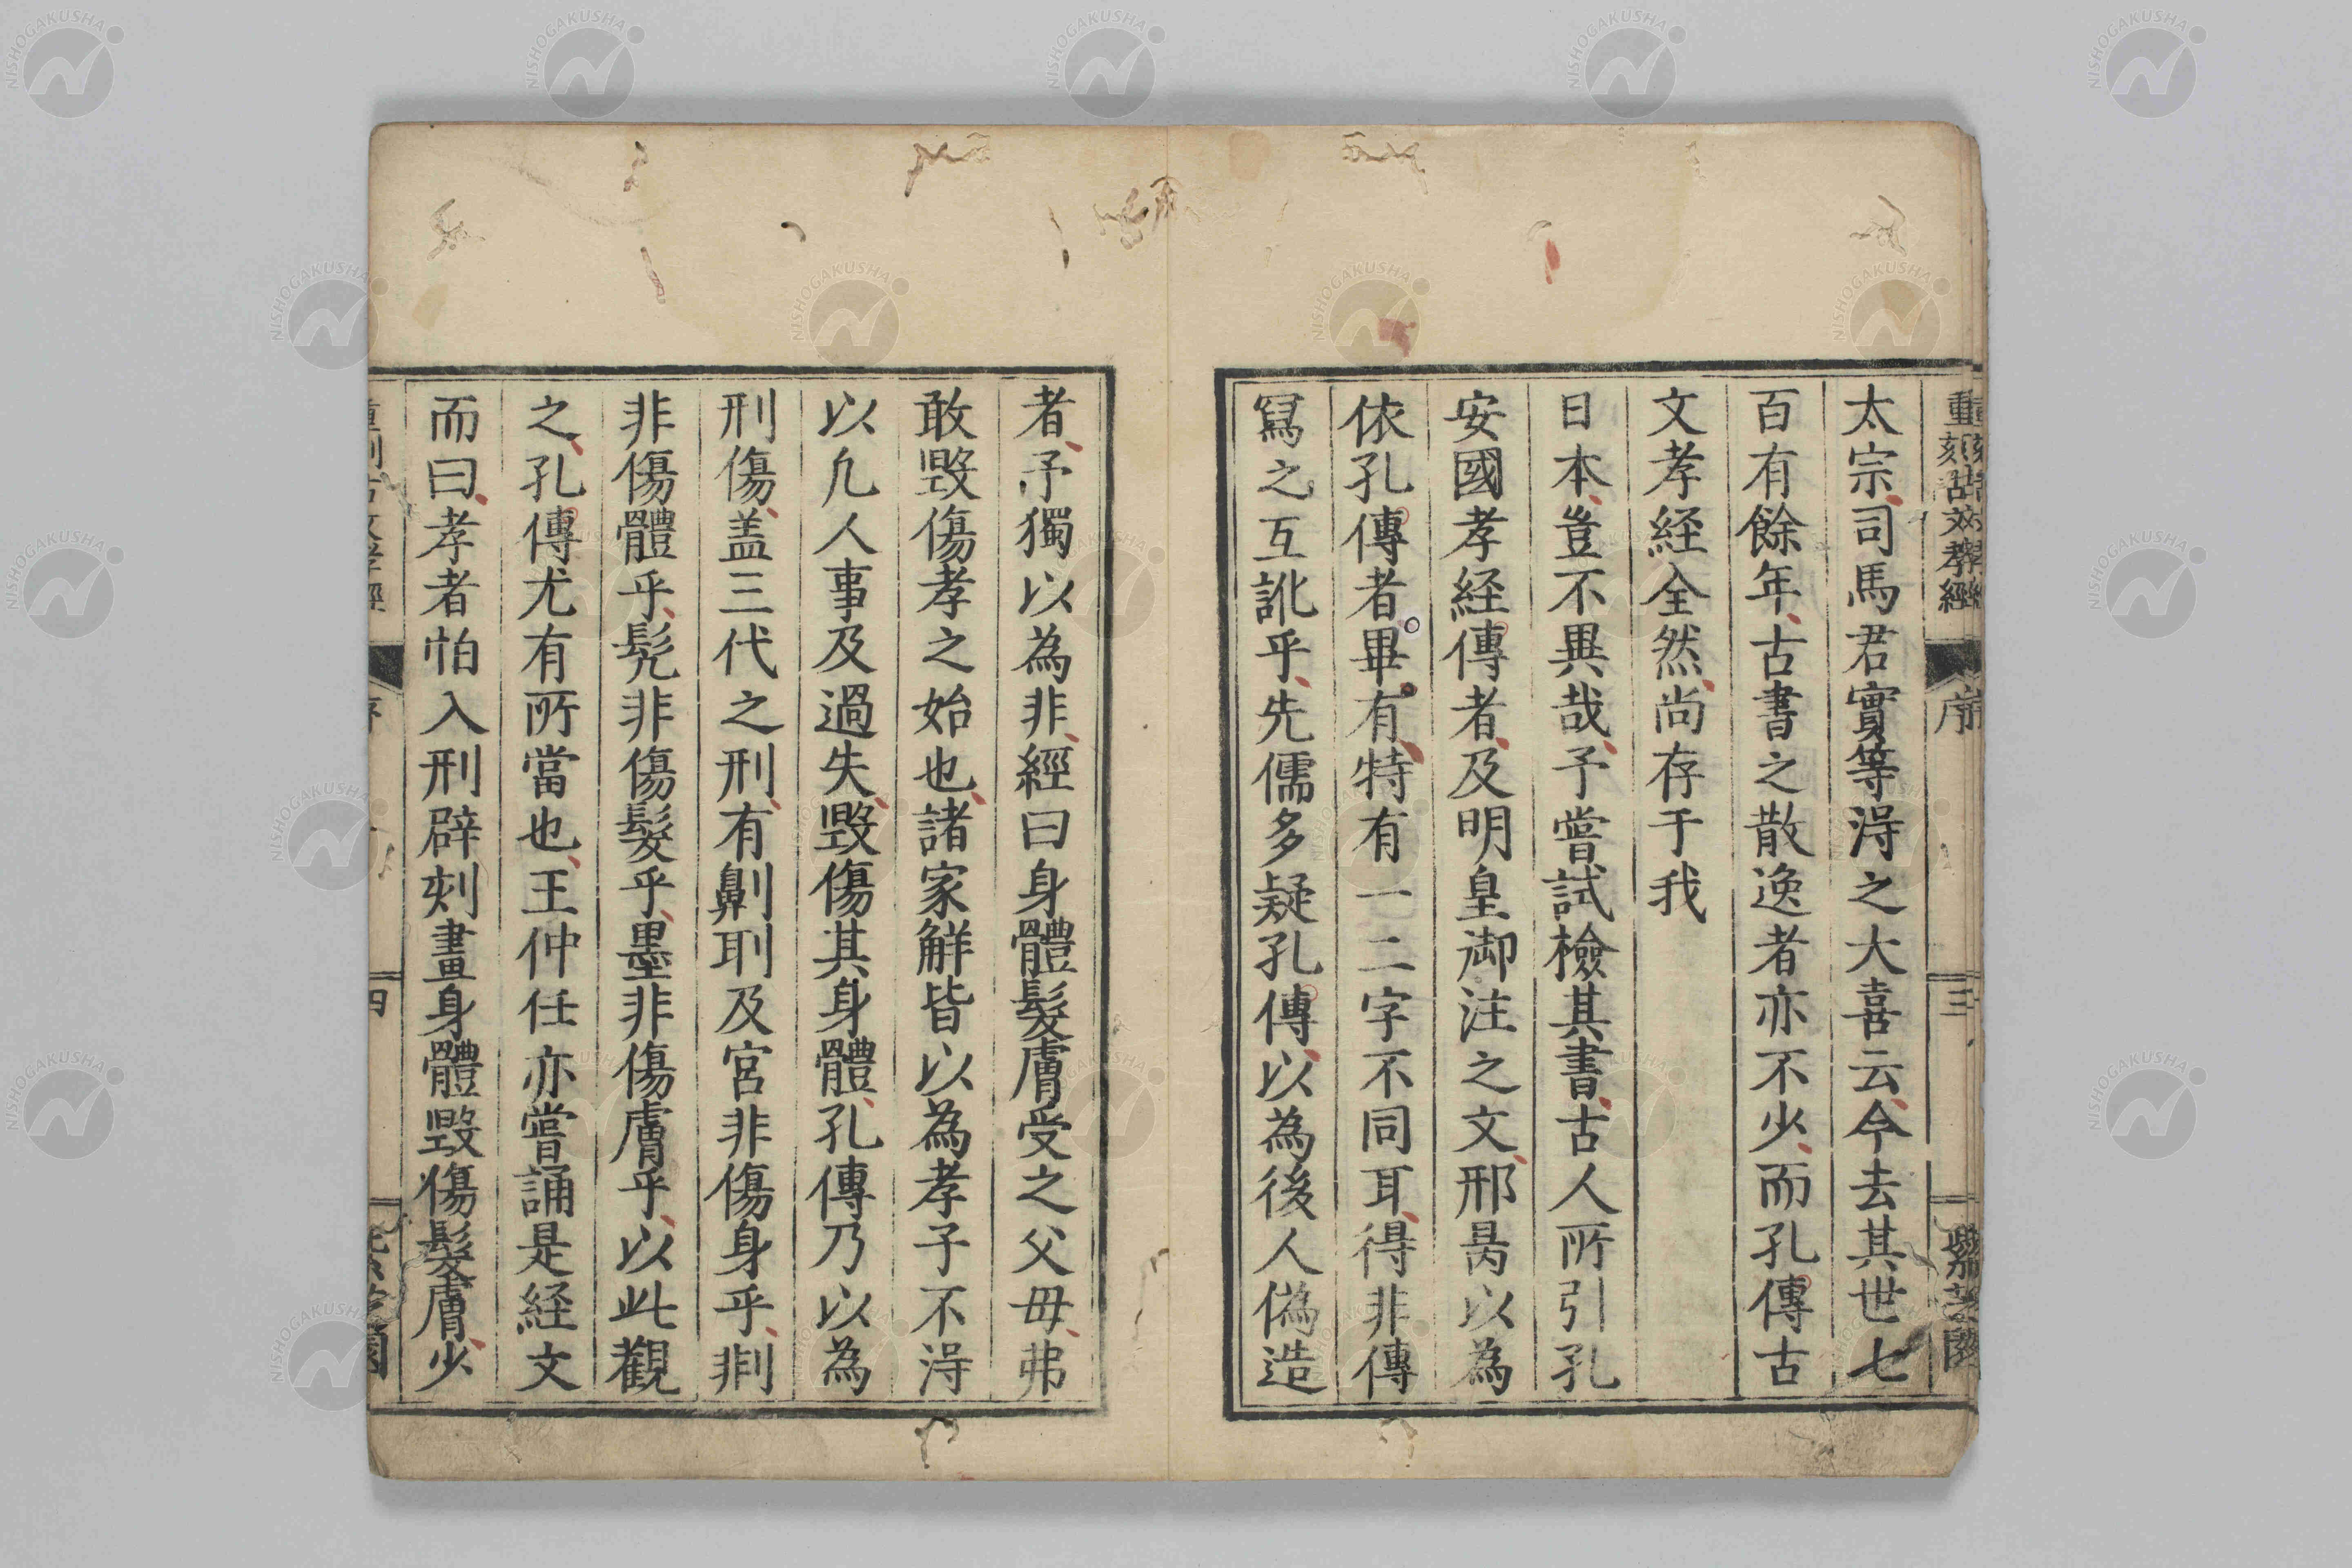 重刻古文孝經
序
三
紫芝園
太宗司馬君實等淂之大喜云今去其世七
百有餘年古書之散逸者亦不少而孔傳古
文孝經全然尚存于我
日本豈不異哉予嘗試檢其書古人所引孔
安國孝経傳者及明皇御注之文邢昺以為
依孔傳者畢有特有一二字不同耳得非傳
冩之互訛乎先儒多疑孔傳以為後人偽造
者予獨以為非經曰身體髮膚受之父母弗
敢毀傷孝之始也諸家觧皆以為孝子不淂
以凢人事及過失毀傷其身體孔傳乃以為
刑傷盖三代之刑有劓刵及宮非傷身乎剕
非傷體乎髠非傷髮乎墨非傷膚乎以此觀
之孔傳尤有所當也王仲任亦嘗誦是経文
而曰孝者怕入刑辟刻畫身體毀傷髮膚少
序
四